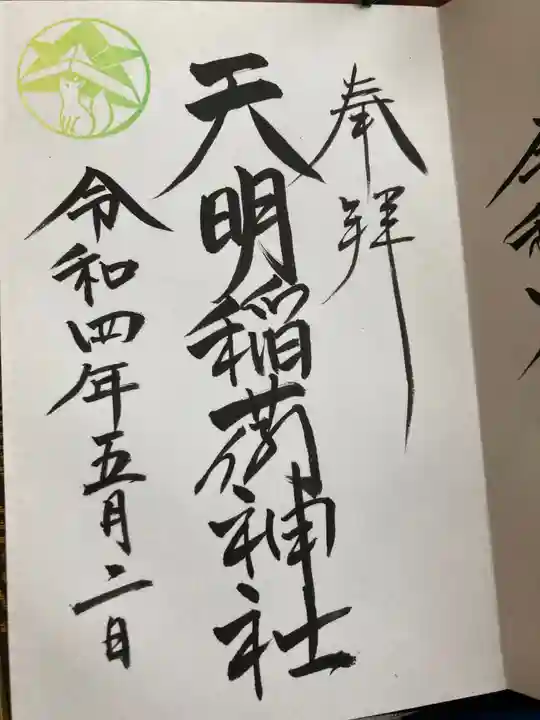 奉拝
天明稲荷神社
令和四年五月二日